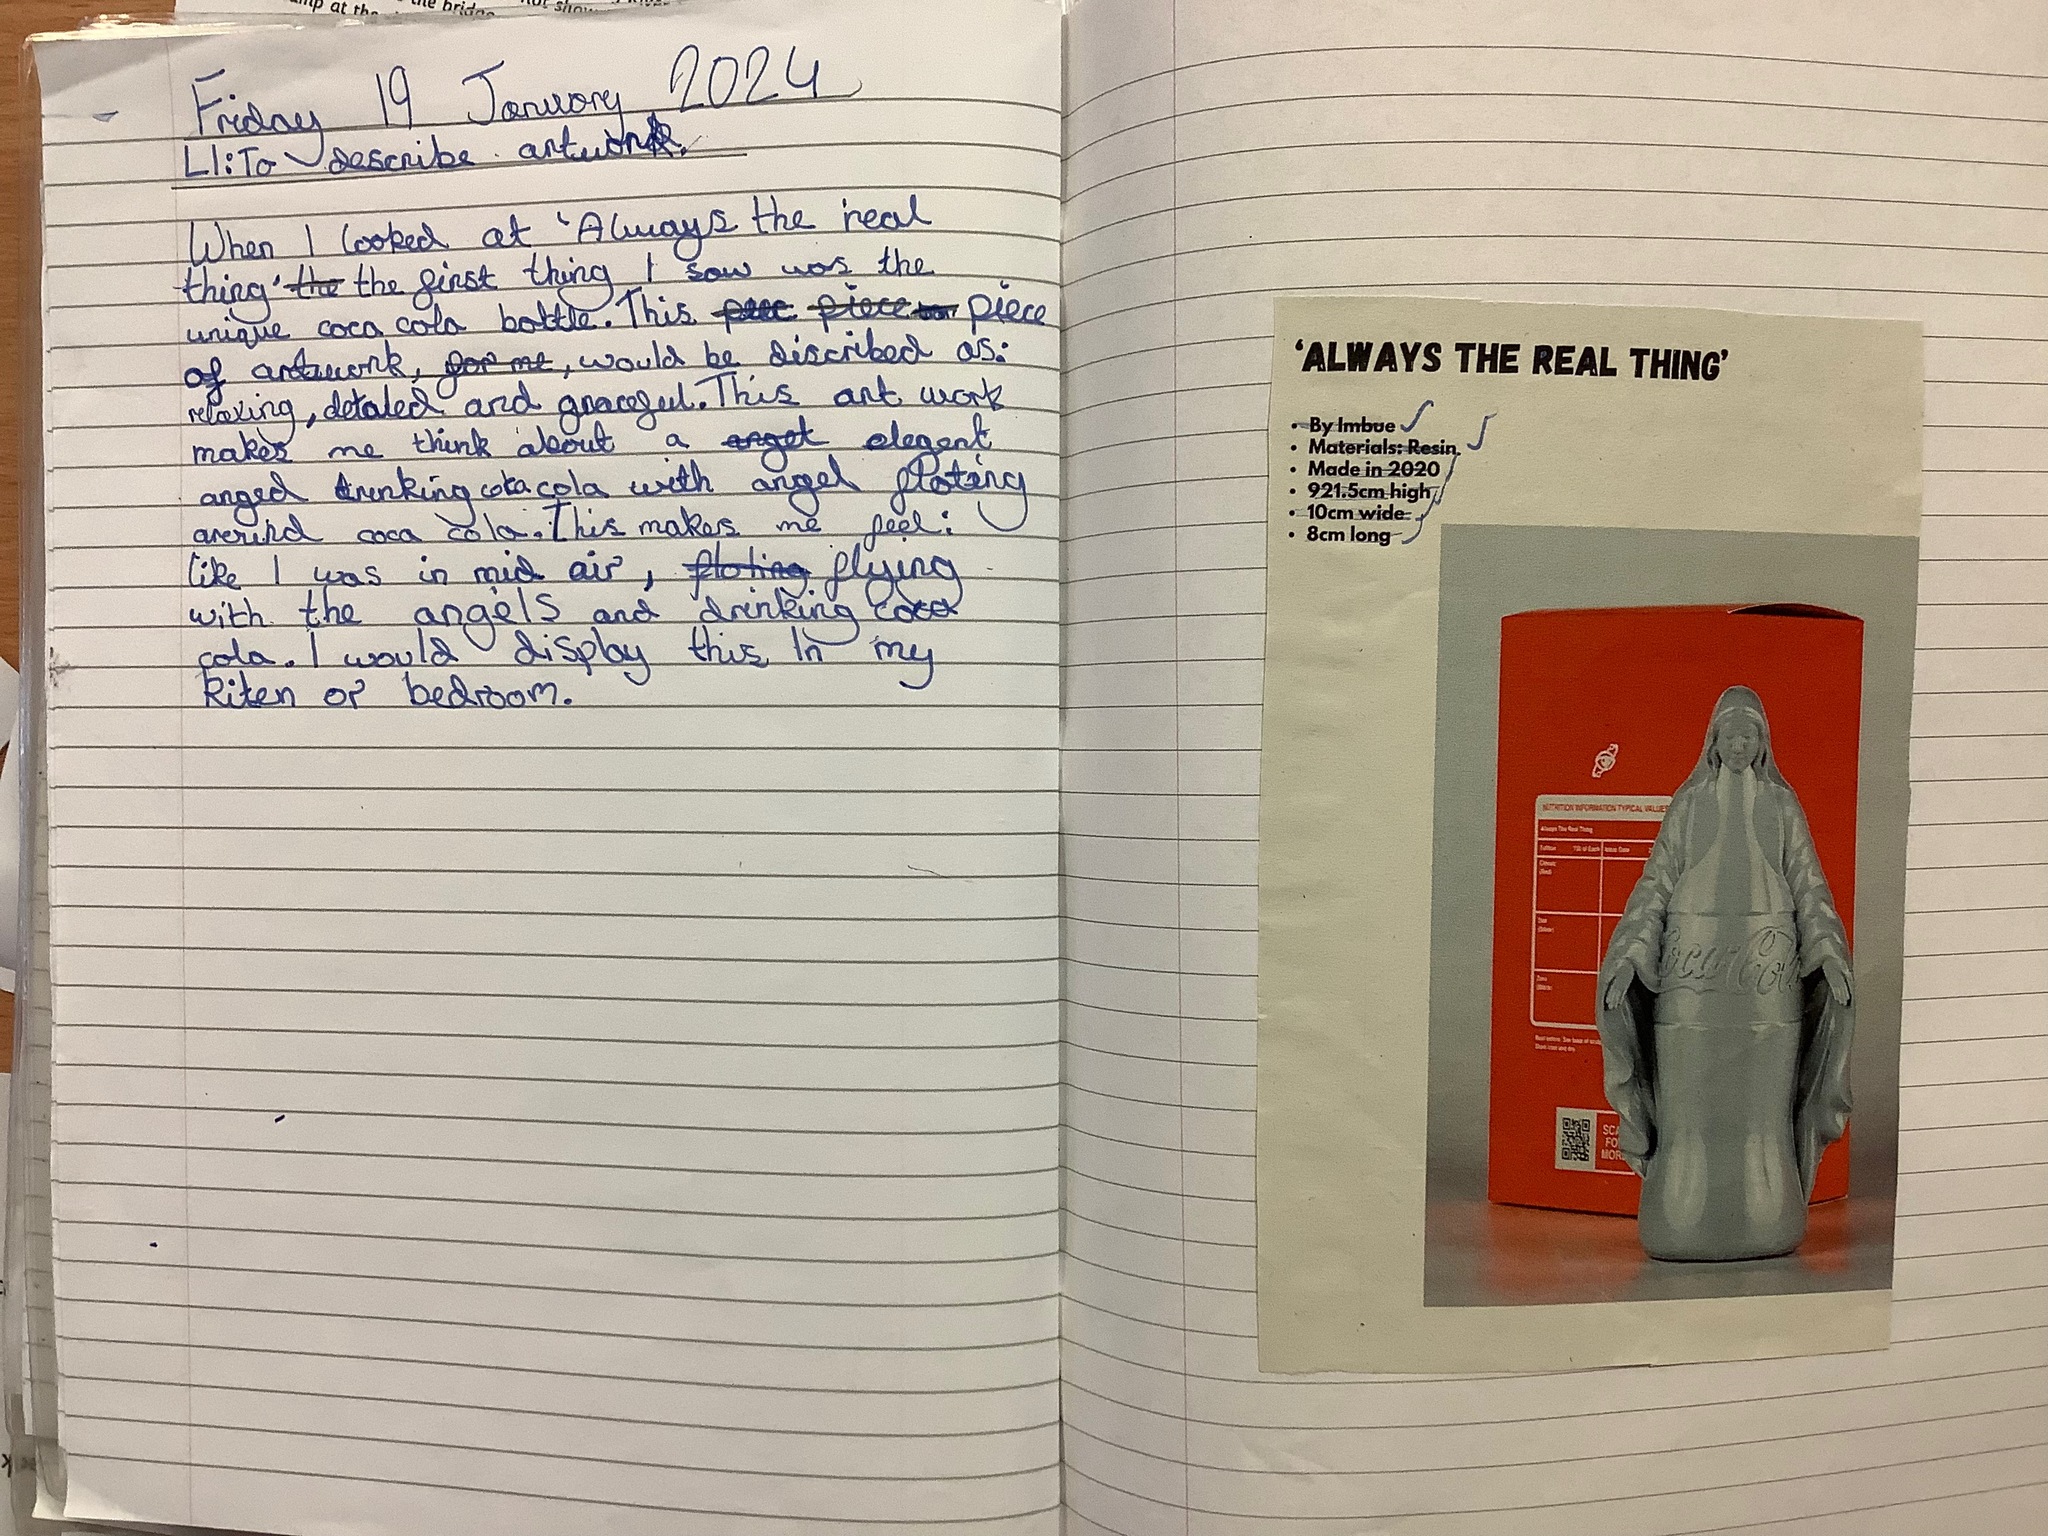 Friday 19 January 2024
LI: To describe artwork.
When I looked at 'Always the real
thing' the the first thing I saw was the
unique coca cola bottle. This piece piece
of artwork, for me, would be discribed as:
relaxing, detaled and graceful. This art work
makes me think about a anget elegent
anged drinking coca cola with angel floting
arerind coca cola. This makes me feel:
like I was in mid air, floting flying
with the angels and drinking coca
cola. I would display this In my
kiten or bedroom.
'ALWAYS THE REAL THING'
• By Imbue
• Materials: Resin
• Made in 2020
• 921.5cm high
• 10cm wide
• 8cm long
NUTRITION INFORMATION TYPICAL VALUES
Always The Real Thing
Edition 150 of Each Issue Date
Classic
(Red)
Zero
Coca-Cola
SCA
FO
MOR